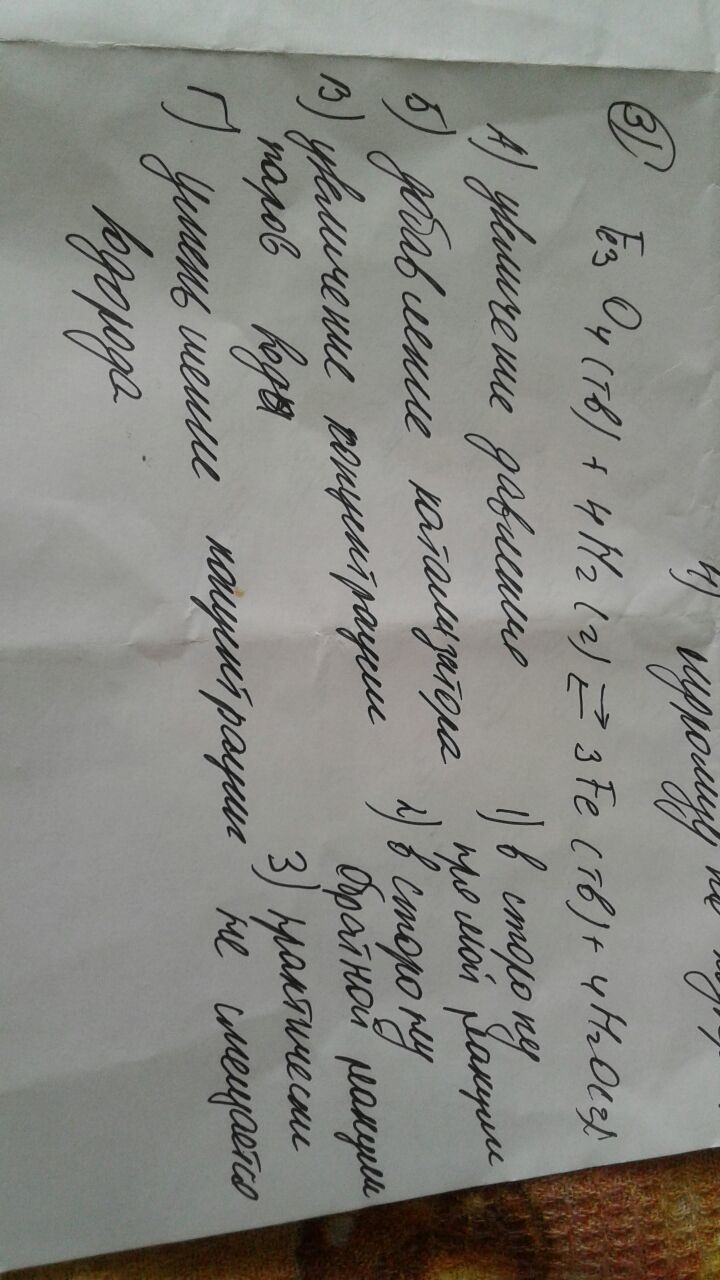 4)
31 Fe3O4(тв) + 4H2(г) ⇄ 3Fe(тв) + 4H2O(г)
А) увеличение давления
Б) добавление катализатора
В) увеличение концентрации
паров воды
Г) уменьшение концентрации
водорода
1) в сторону
прямой реакции
2) в сторону
обратной реакции
3) практически
не смещается